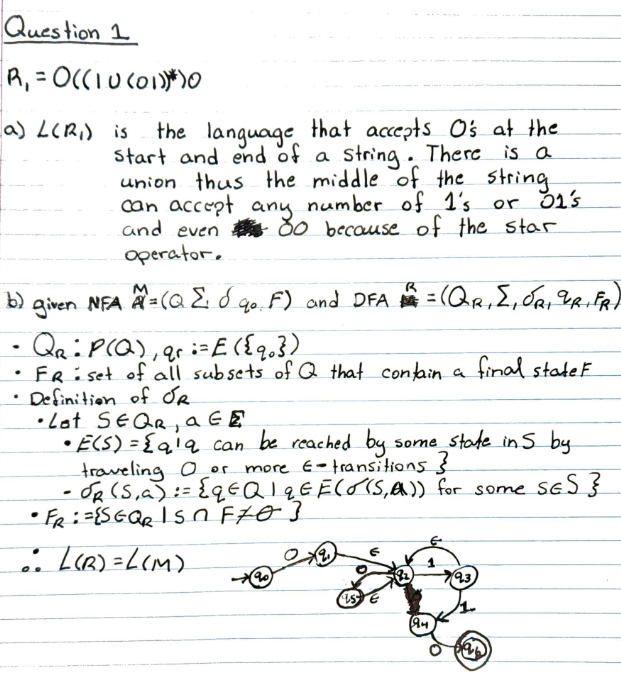 Question 1
R₁ = 0((1∪(01))*)0
a) L(R₁) is the language that accepts 0's at the
start and end of a string. There is a
union thus the middle of the string
can accept any number of 1's or 01's
and even 00 because of the star
operator.
b) given NFA M=(Q Σ δ q₀ F) and DFA R=(Q_R, Σ, δ_R, q_R, F_R)
• Q_R : P(Q), q_r := E({q₀})
• F_R : set of all subsets of Q that contain a final state F
• Definition of δ_R
• Let S∈Q_R, a∈Σ
• E(S) = {q | q can be reached by some state in S by
traveling 0 or more ε-transitions}
- δ_R(S,a) := {q∈Q | q∈E(δ(S,a)) for some s∈S}
• F_R := {S∈Q_R | S∩F≠∅}
∴ L(R) = L(M)
q₀ 0 q₁ ε q₂ 1 q₃ ε
0 q₅ ε
q₄ 1
0 q₆